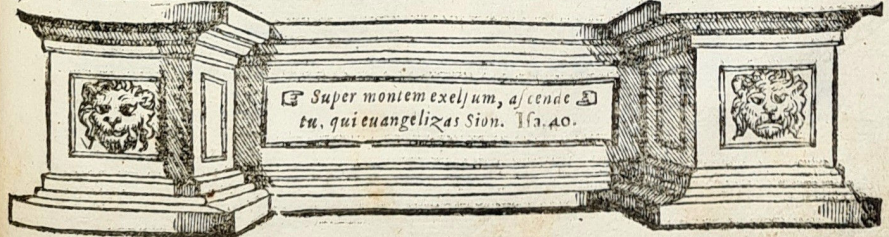 ☞ Super montem exelſum, aſcende ☜
tu, qui euangelizas Sion. Iſa. 40.